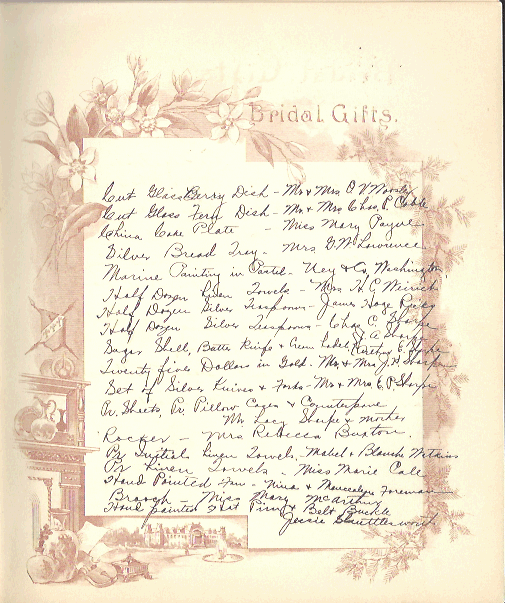 Bridal Gifts.
Cut Glass Berry Dish - Mr & Mrs O V
Cut Glass Fern Dish - Mr & Mrs Chas. P.
China Cake Plate - Miss Mary Payne
Silver Bread Tray - Mrs G.W. Lawrence
Marine Painting in Pastel - Uey & Co, Washington
Half Dozen Linen Towels - Mrs H. C. Weirich
Half Dozen Silver Teaspoons - James Hoge
Half Dozen Silver Teaspoons - Chas C. Sharpe
Sugar Shell, Butter Knife & Cream Ladel, J. A. Sharpe
Twenty five Dollars in Gold - Mr & Mrs J. H. Sharpe
Set of Silver Knives & Forks - Mr & Mrs E. P. Sharpe
Pr. Sheets, Pr. Pillow Cases & Counterpane
Mr Lacy Sharpe & mother
Rocker - Mrs Rebecca Buxton.
Pr Initial Linen Towels - Mabel & Blanche
Pr Linen Towels - Miss Marie Call
Hand Painted Fan - Nina & Foreman
Broogh - Miss Mary McArthur
Hand painted Hat Pin & Belt Buckle
Jessie Shuttleworth